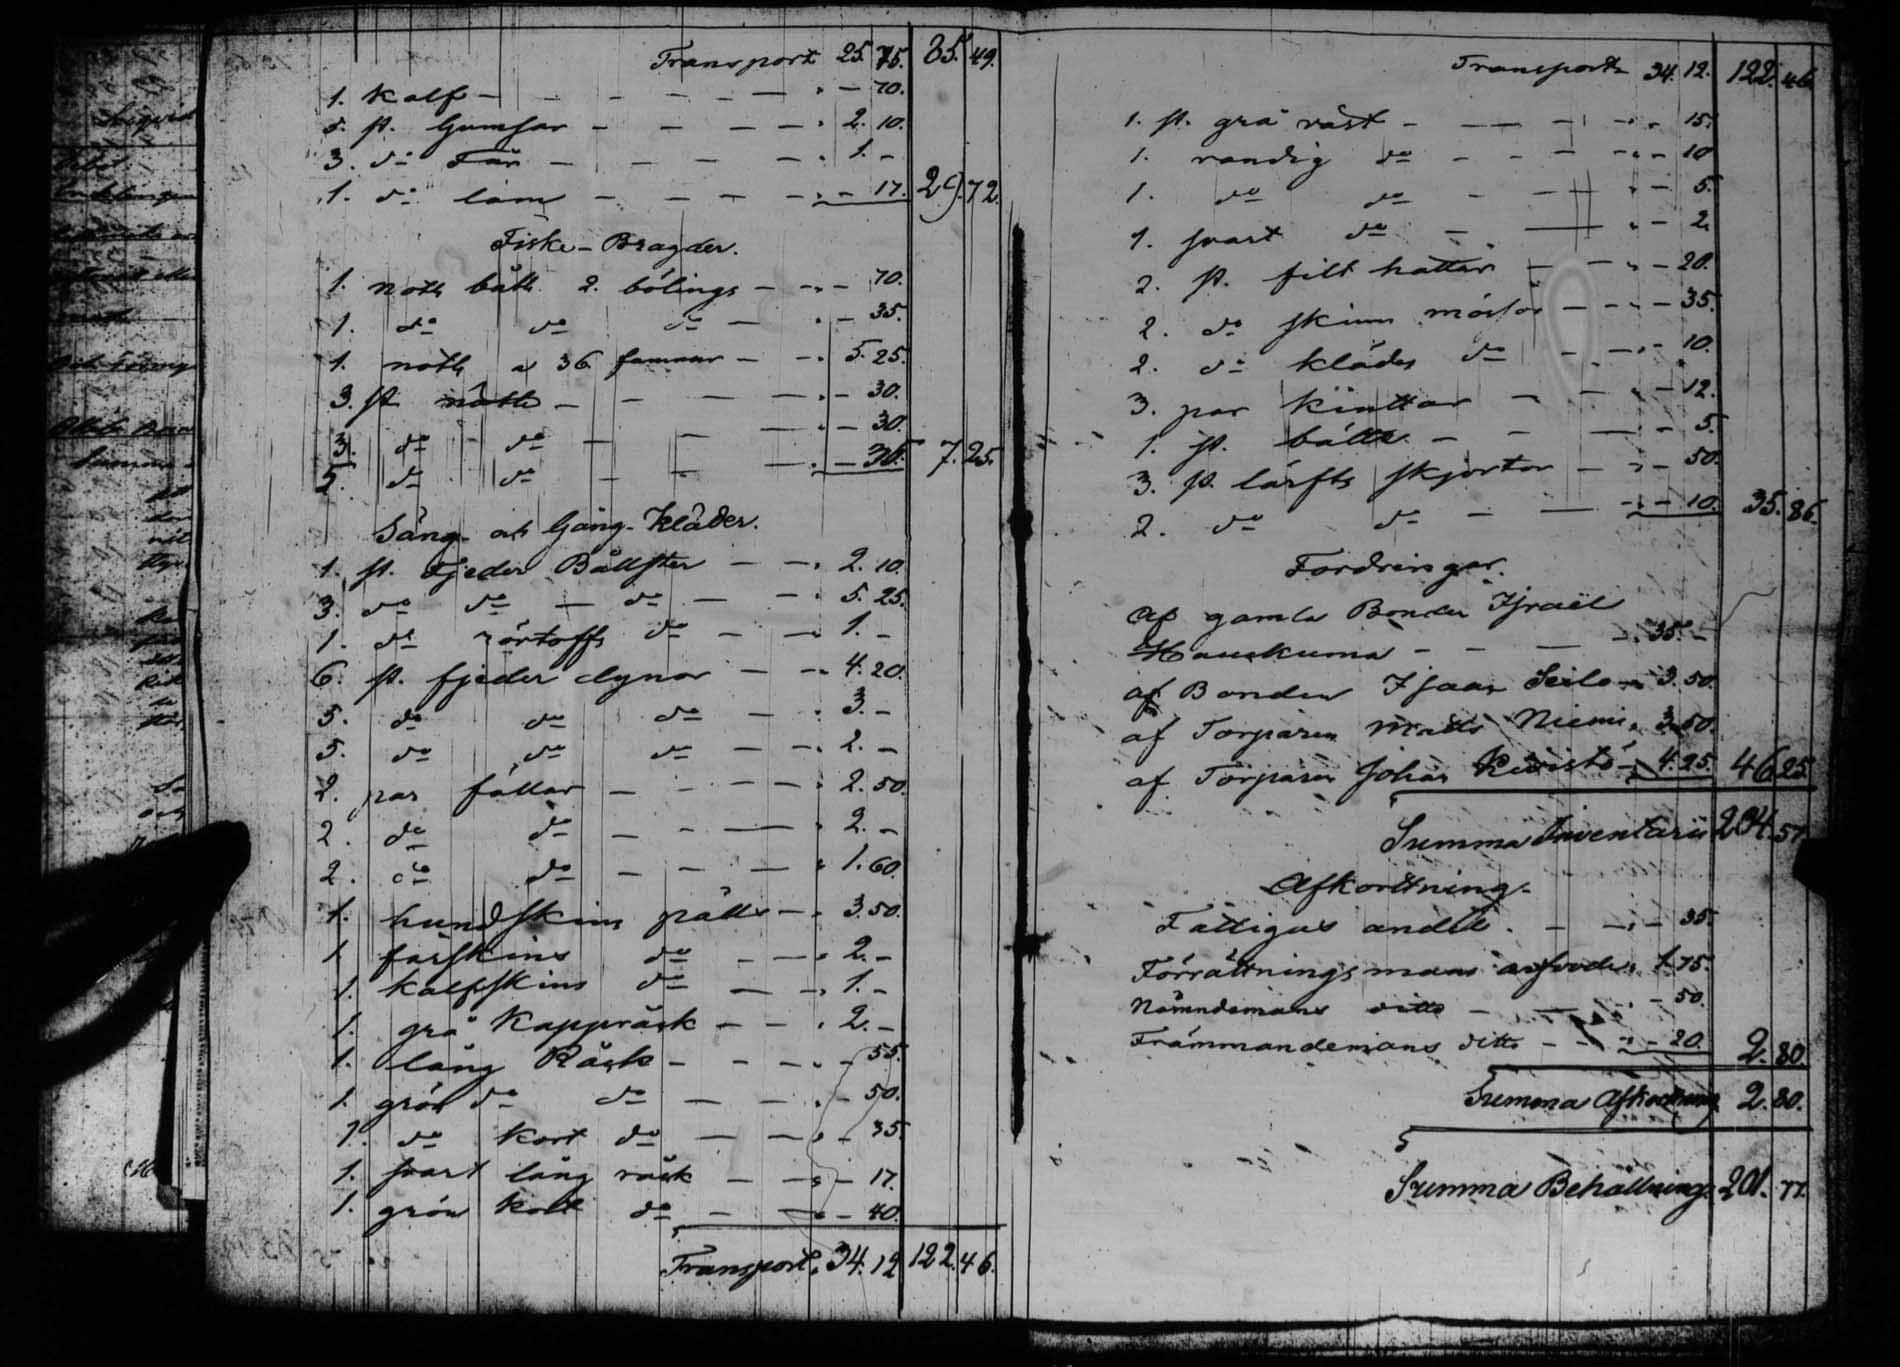 Transport 25. 75. 85. 49.
1. Kalf - - - - - - - 70.
5. st. Gumsar - - - - - 2. 10.
3. do Får - - - - - 1. -
1. do lam - - - - - - 17. 29. 72.
Fiske-Bragder.
1. noth båth 2. bölings - - - 70.
1. do do do - - - 35.
1. noth a 36 famnar - - 5. 25.
3. st. näth - - - - - - 30.
3. do do - - - - 30.
2. do do - - - - 35. 7. 25.
Säng- och Gång-Kläder.
1. st. Fjeder Bållster - - 2. 10.
3. do do - do - - 5. 25.
1. do rörtofts do - - 1. -
6. st. fjeder dynor - - 4. 20.
5. do do do - - 3. -
5. do do do - - 2. -
2. par fällar - - - - 2. 50.
2. do do - - - - 2. -
2. do do - - - - 1. 60.
1. hundskins pälts - - 3. 50.
1. fårskins do - - - 2. -
1. kalfskins do - - - 1. -
1. grå Kappråck - - - 2. -
1. lång Råck - - - - - 55.
1. grön do do - - - - 50.
1. do kort do - - - - 35.
1. svart lång råck - - - - 17.
1. grön kort do - - - - 40.
Transport. 34. 12 122. 46.
Transport 34. 12. 122. 46.
1. st. grå väst - - - - - 15.
1. randig do - - - - - 10
1. do do - - - - 5.
1. svart do - - - - 2.
2. st. filt hattar - - - - 20.
2. do skinn mössor - - - - 35.
2. do klädes do - - - 10.
3. par Kinttar - - - - 12.
1. st. bälte - - - - 5.
3. st. lärfts skjortor - - - 50.
2. do do - - - - 10. 35. 86.
Fordringar.
af gamla Bonden Isräel
Hauskuma - - - - 35. -
af Bonden Isaac Seilo - 3. 50.
af Torparen Matts Niemi. 3. 50.
af Torparen Johan - 4. 25. 46 25.
Summa Inventarii 204. 57
Afkorttning.
Fattigas andel. - - - 35.
Förrättnings mans arfvode. 1. 75.
Nämndemans ditto - - - 50.
Främmandemans ditto - - - 20. 2. 80.
Summa Afkorttning 2. 80.
Summa Behållning 201. 77.